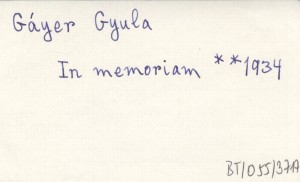 Gáyer Gyula
In memoriam **1934
BT/055/37A